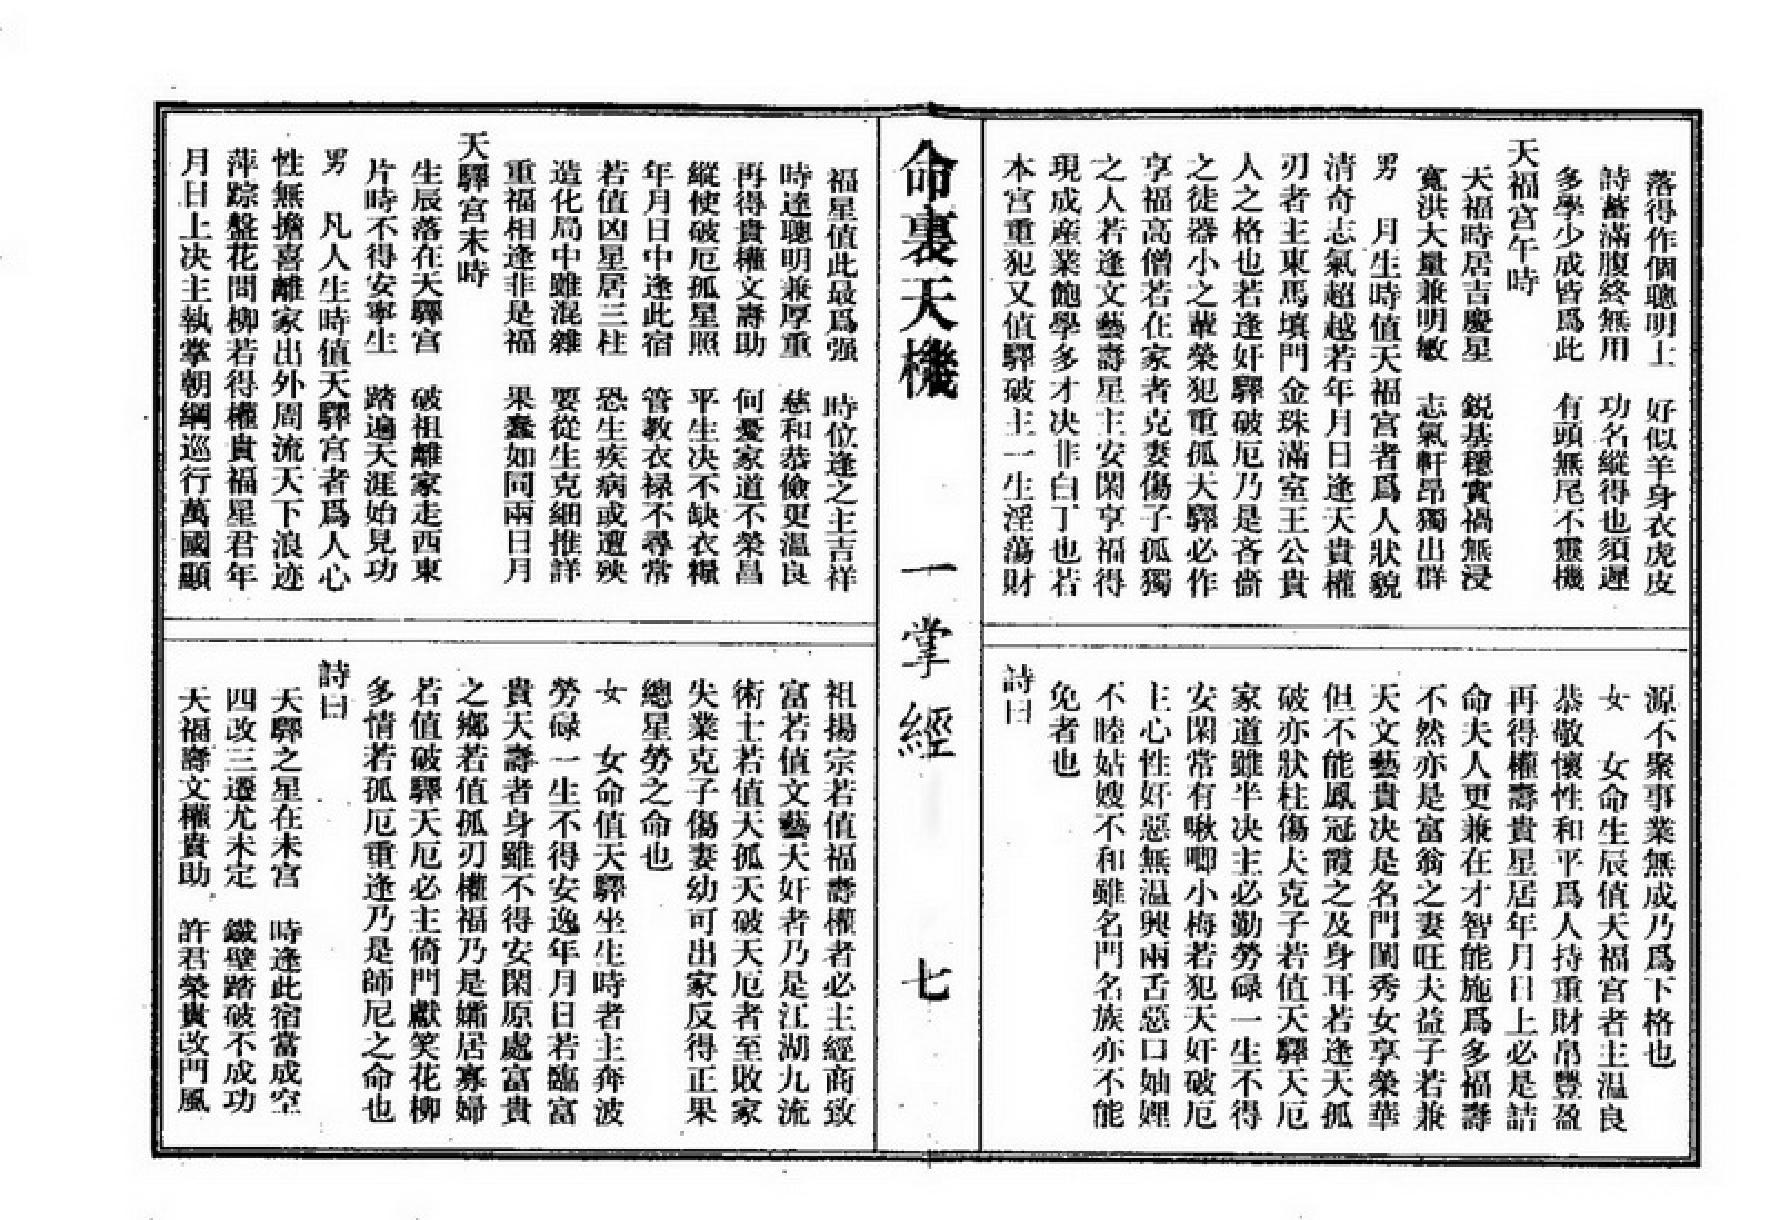 落得作個聰明上　好似羊身衣虎皮
詩蓄滿腹終無用　功名縱得也須遲
多學少成皆爲此　有頭無尾不靈機
天福宮午時
天福時居吉慶星　銳基穩實禍無浸
寬洪大量兼明敏　志氣軒昂獨出群
男　月生時值天福宮者爲人狀貌
清奇志氣超越若年月日逢天貴權
刃者主東馬填門金珠滿室王公貴
人之格也若逢奸驛破厄乃是吝嗇
之徒器小之輩榮犯重孤天驛必作
享福高僧若在家者克妻傷子孤獨
之人若逢文藝壽星主安閑亨福得
現成産業飽學多才决非白丁也若
本宮重犯又值驛破主一生淫蕩財
源不聚事業無成乃爲下格也
女　女命生辰值天福宮者主温良
恭敬懷性和平爲人持重財帛豐盈
再得權壽貴星居年月日上必是誥
命夫人更兼在才智能施爲多福壽
不然亦是富翁之妻旺夫益子若兼
天文藝貴决是名門閨秀女享榮華
但不能鳳冠霞之及身耳若逢天孤
破亦狀柱傷夫克子若值天驛天厄
家道雖半决主必勤勞碌一生不得
安閑常有啾唧小梅若犯天奸破厄
主心性奸惡無温興兩舌惡口妯娌
不睦姑嫂不和雖名門名族亦不能
免者也
詩曰
命裏天機　一掌經　七
福星值此最爲强　時位逢之主吉祥
時逢聰明兼厚重　慈和恭儉更温良
再得貴權文壽助　何憂家道不榮昌
縱使破厄孤星照　平生决不缺衣糧
年月日中逢此宿　管教衣禄不尋常
若值凶星居三柱　恐生疾病或遭殃
造化局中雖混雜　要從生克細推詳
重福相逢非是福　果蠢如同兩日月
天驛宮未時
生辰落在天驛宮　破祖離家走西東
片時不得安寧生　踏遍天涯始見功
男　凡人生時值天驛宮者爲人心
性無擔喜離家出外周流天下浪迹
萍踪盤花問柳若得權貴福星君年
月日上决主執掌朝綱巡行萬國顯
祖揚宗若值福壽權者必主經商致
富若值文藝天奸者乃是江湖九流
術士若值天孤天破天厄者至敗家
失業克子傷妻幼可出家反得正果
總星勞之命也
女　女命值天驛坐生時者主奔波
勞碌一生不得安逸年月日若臨富
貴天壽者身雖不得安閑原處富貴
之鄉若值孤刃權福乃是孀居寡婦
若值破驛天厄必主倚門獻笑花柳
多情若孤厄重逢乃是師尼之命也
詩曰
天驛之星在未宮　時逢此宿當成空
四改三遷尤未定　鐵壁踏破不成功
天福壽文權貴助　許君榮貴改門風